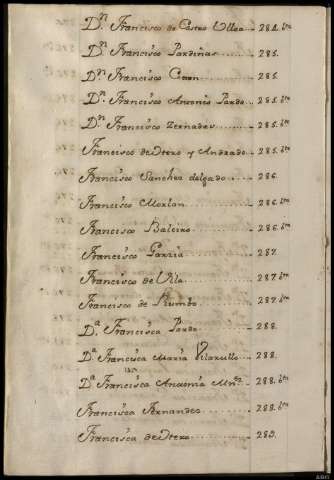 D.n Francisco de Castro Ulloa .. 284. bta
D.n Francisco Pardiñas ........ 285.
D.n Francisco Caan ........ 285.
D.n Francisco Antonio Pardo .. 285. bta
D.n Francisco Zernadas ....... 285. bta
Francisco de Otero y Andrade .. 285. bta
Francisco Sanchez delgado .... 286.
Francisco Morlan ........ 286. bta
Francisco Baleiro ........ 286. bta
Francisco Garzia ........ 287.
Francisco de Villa ........ 287. bta
Francisco de Rumbo ........ 287. bta
D.a Francisca Pardo ........ 288.
D.a Francisca Maria Vilarullo .. 288.
D.a Francisca Antonia Mnz .. 288. bta
Francisca Fernandes ........ 288. bta
Francisca de Otero ........ 289.